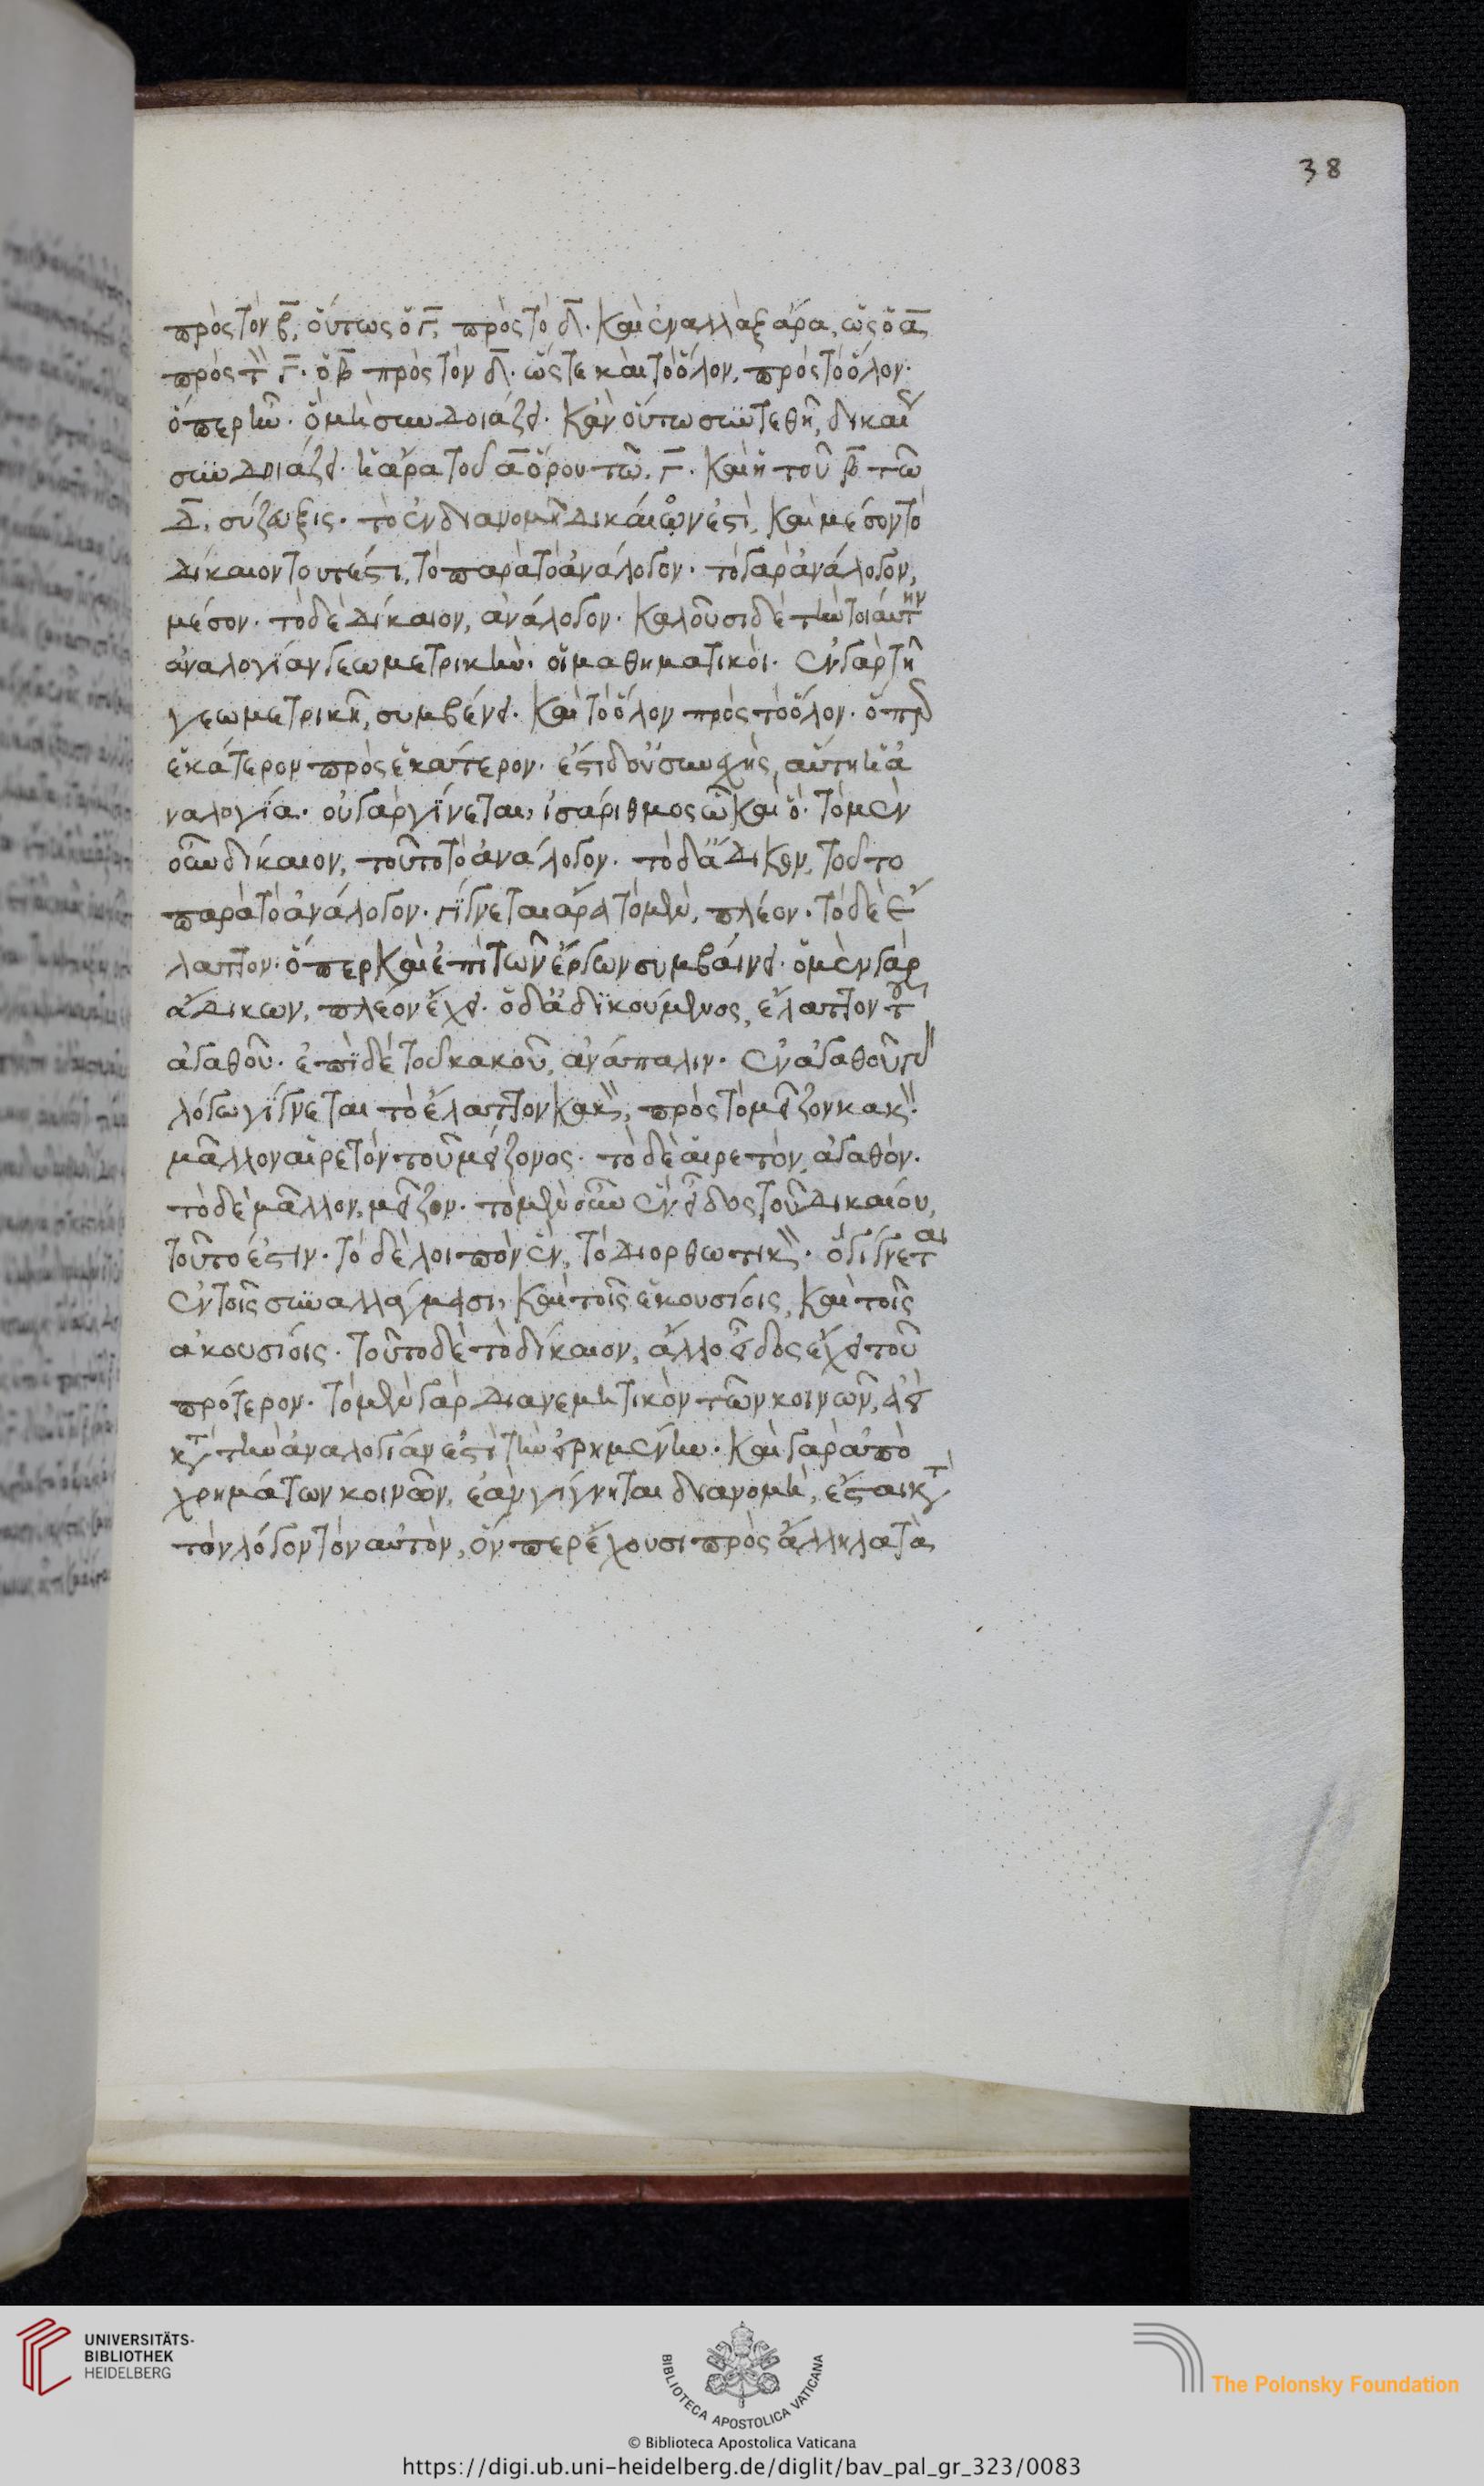 38
πρὸς τὸν β̅, οὕτως ὁ γ̅, πρὸς τὸ δ̅. καὶ ἐναλλὰξ ἄρα, ὡς ὁ α̅
πρὸς τ̀ γ̅. ὁ β̅ πρὸς τὸν δ̅. ὥςτε καὶ τὸ ὅλον, πρὸς τὸ ὅλον.
ὅπερ ἡ. ὁμὴ συνδοιάζει. κἂν οὕτω συντεθῆ, δικαί
συνδοιάζει. ἡ ἄρα τοῦ α̅ ὅρου τῶ γ̅. καὶ ἡ τοῦ β̅ τῶ
δ̅. σύζευξις. τὸ ἐν διανομῆ δίκαιόν ἐστὶ, καὶ μέσον τὸ
δίκαιον τουτέστι, τὸ παρὰ τὸ ἀνάλογον. τὸ γὰρ ἀνάλογον,
μέσον. τὸ δὲ δίκαιον, ἀνάλογον. καλοῦσι δὲ τὴν τοιαύτην
ἀναλογίαν γεωμετρικὴν. οἱ μαθηματικοί. ἐν γὰρ τῆ
γεωμετρικῆ, συμβένει. καὶ τὸ ὅλον πρὸς τὸ ὅλον. ὅπερ
ἑκάτερον πρὸς ἑκάτερον. ἔστι δ' οὐ συνεχὴς, αὕτη ἡ ἀ
ναλογΐα. οὐ γὰρ γΐνεται, ἰσάριθμος ὧ καὶ ὁ. τὸ μὲν
οὖν δίκαιον, τοῦτο τὸ ἀνάλογον. τὸ δ' ἄδικον, τοῦτο
παρὰ τὸ ἀνάλογον. γΐγνεται ἄρα τὸ μὲν, πλέον. τὸ δὲ ἔ
λαττον. ὅπερ καὶ ἐπὶ τῶν ἔργων συμβαίνει. ὁ μὲν γὰρ
ἀδικων, πλέον ἔχει. ὁ δ' ἀδϊκούμενος, ἔλαττον τοῦ
ἀγαθοῦ. ἐπϊ δέ τοῦ κακοῦ, ἀνάπαλιν. ἐν ἀγαθοῦ γὰρ
λόγω γίγνεται τὸ ἔλαττον κακὸν, πρὸς τὸ μεῖζον κακὸν.
μᾶλλον αἱρετόν τοῦ μείζονος. τὸ δὲ αἱρετὸν, ἀγαθόν.
τὸ δὲ μᾶλλον, μεῖζον. τὸ μὲν οὖν ἓν εἶδος τοῦ δικαίου,
τοῦτό ἐστιν. τὸ δὲ λοιπὸν ἓν, τὸ διορθωτικὸν. ὃ γίγνεται
ἐν τοῖς συναλλάγμασι, καὶ τοῖς ἑκουσίοις, καὶ τοῖς
ἀκουσίοις. τοῦτο δὲ τὸ δίκαιον, ἄλλο εἶδος ἔχει τοῦ
πρότερον. τὸ μὲν γὰρ διανεμητικὸν τῶν κοινῶν, ἀεὶ
κατὰ τὴν ἀναλογίαν ἐστὶ τὴν εἰρημένην. καὶ γὰρ ἀπὸ
χρημάτων κοινῶν, ἐὰν γίγνηται διανομὴ, ἔσται κατὰ
τὸν λόγον τὸν αὐτὸν, ὅνπερ ἔχουσι πρὸς ἄλληλα τὰ
UNIVERSITÄTS-
BIBLIOTHEK
HEIDELBERG
BIBLIOTECA APOSTOLICA VATICANA
The Polonsky Foundation
© Biblioteca Apostolica Vaticana
https://digi.ub.uni-heidelberg.de/diglit/bav_pal_gr_323/0083